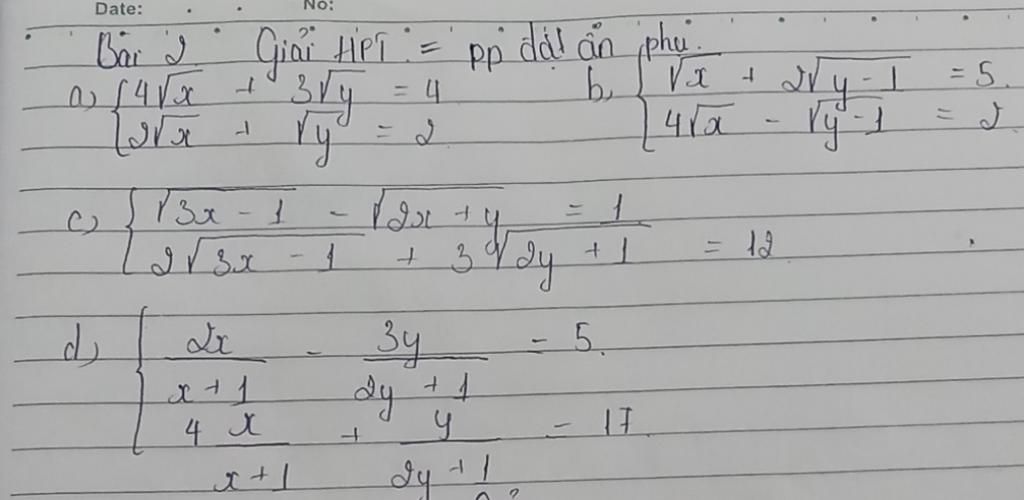 Date: No:
Bài 2 Giải HPT = pp đặt ẩn phụ.
a, { 4√x + 3√y = 4
2√x + √y = 2
b, { √x + 2√y-1 = 5
4√x - √y-1 = 2
c, { √3x-1 - √2x+y = 1
2√3x-1 + 3√2y+1 = 12
d, { 2x/x+1 - 3y/2y+1 = 5
4 x/x+1 + y/2y+1 = 17